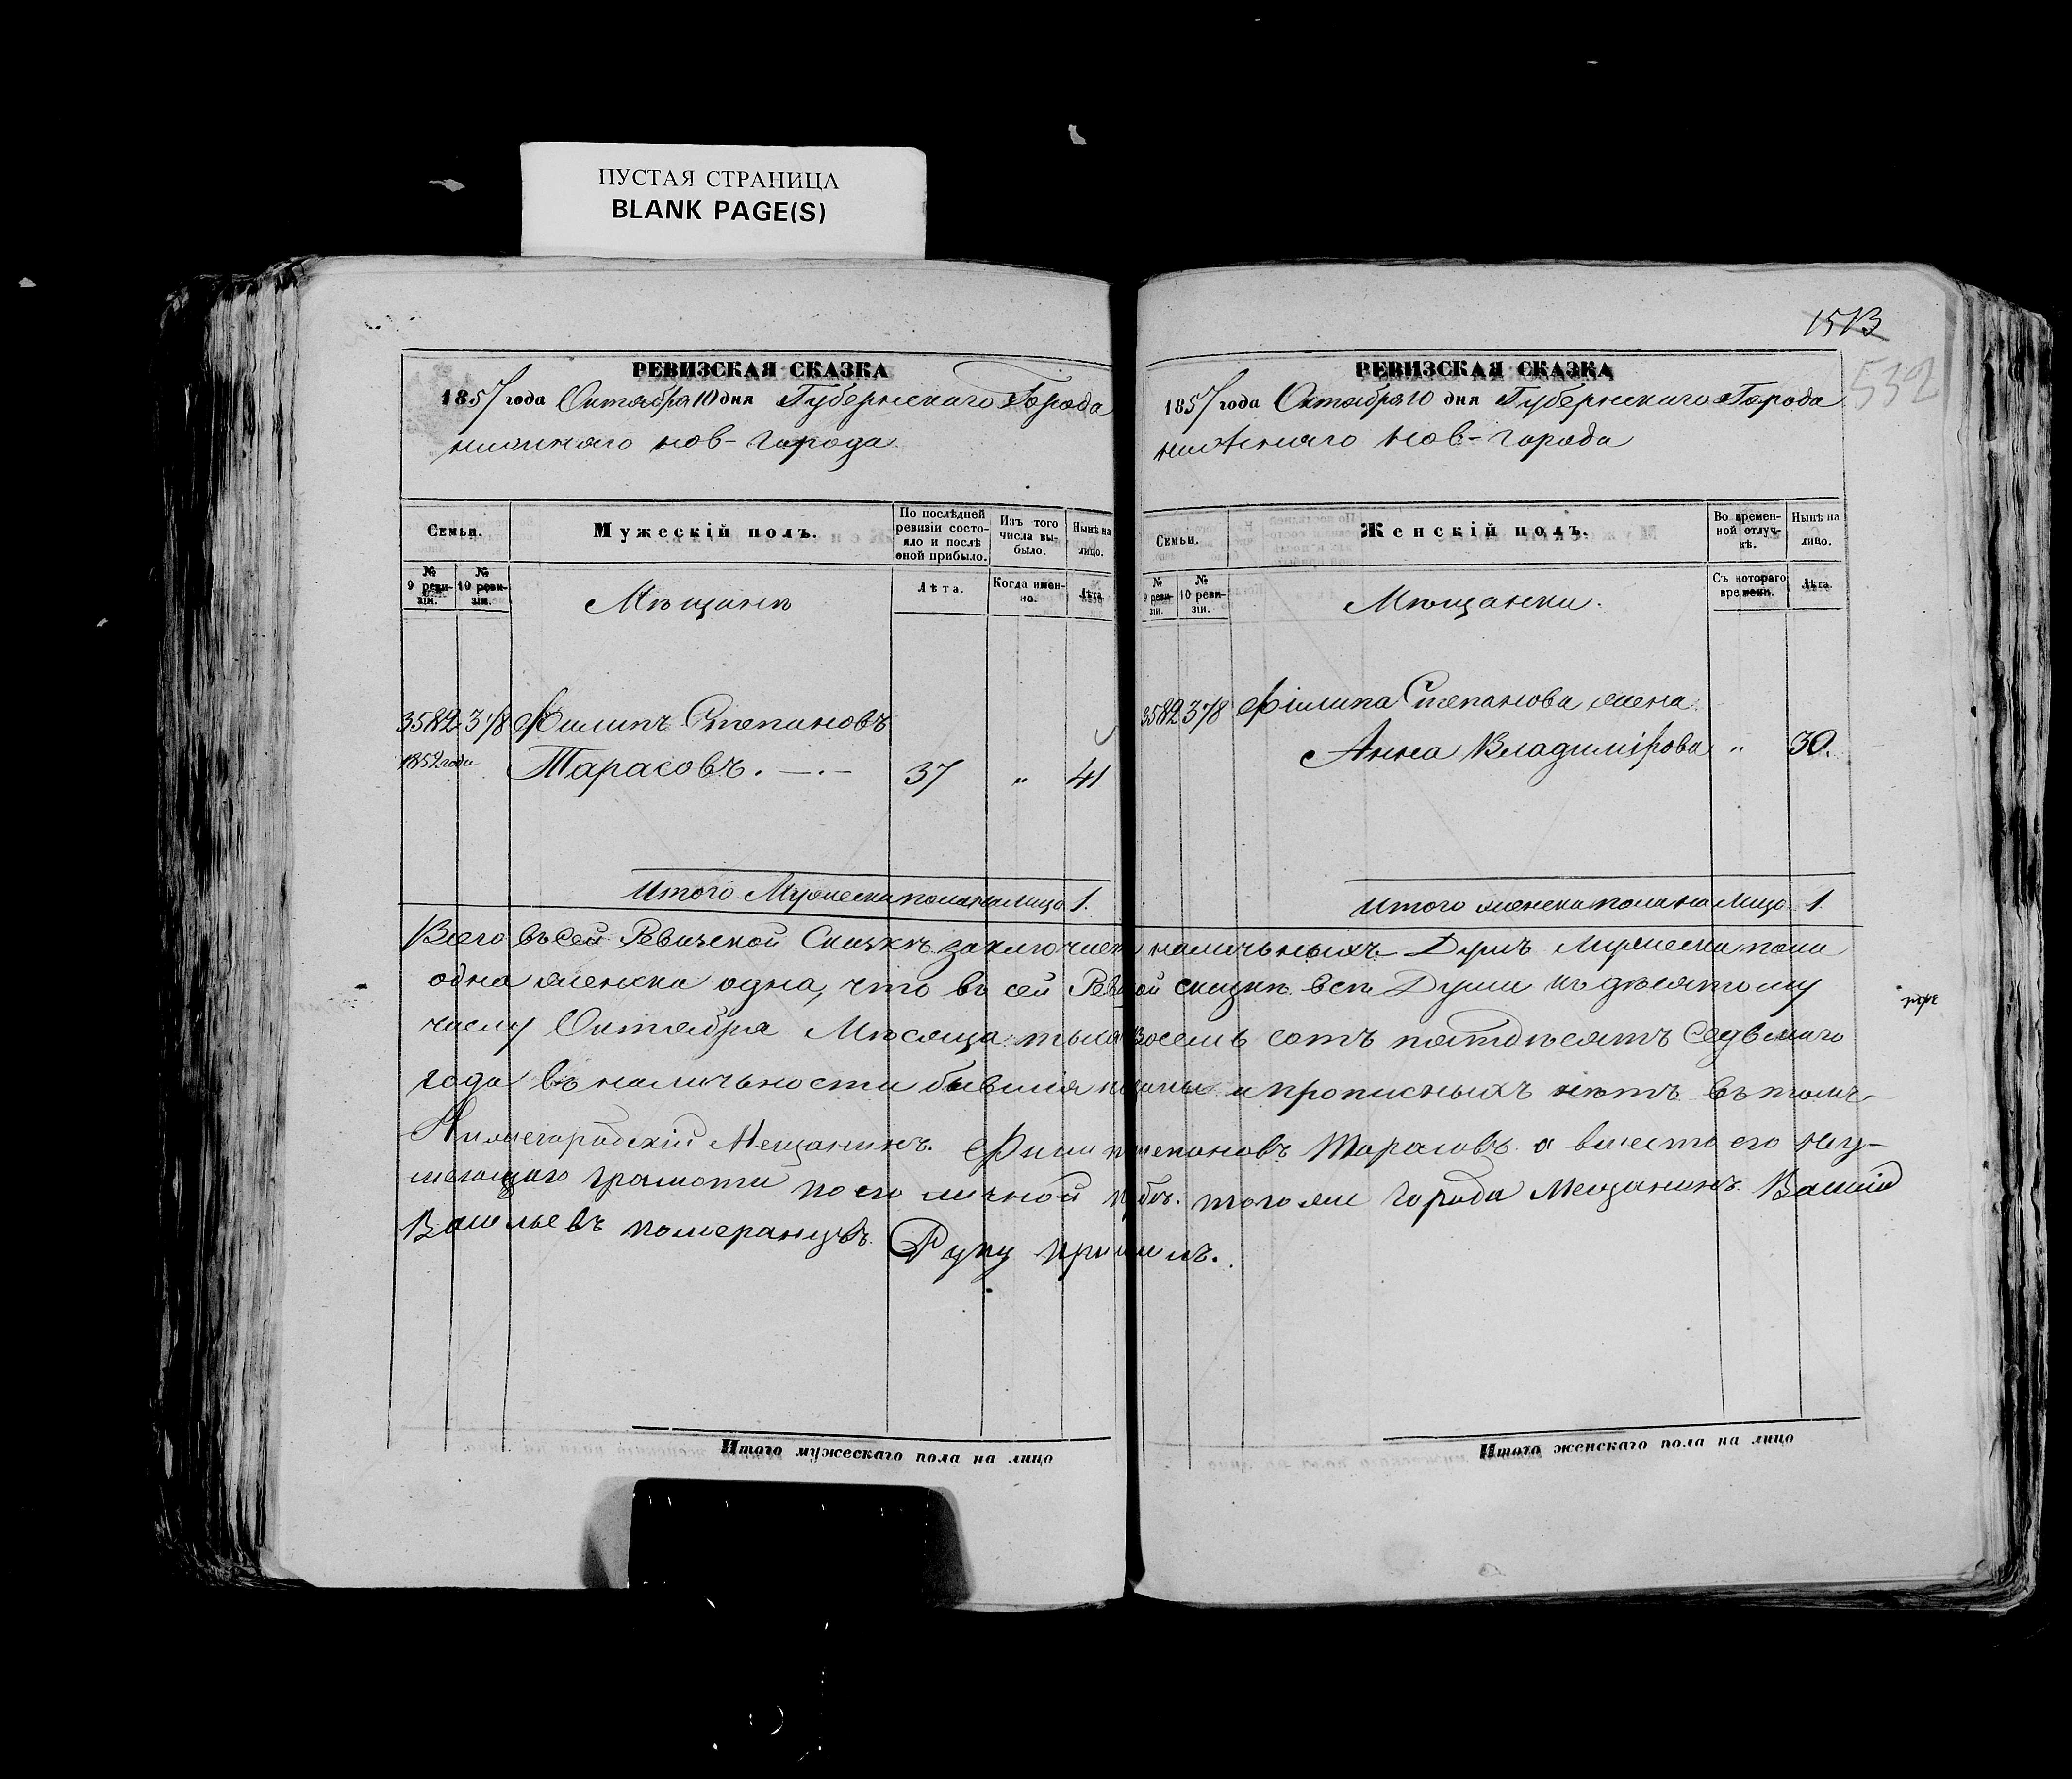 ПУСТАЯ СТРАНИЦА
BLANK PAGE(S)
РЕВИЗСКАЯ СКАЗКА
1857 года Октября 10 дня Губернскаго Города
нижняго нов-города
Семьи.
Мужескій полъ.
По послѣдней ревизіи состояло и послѣ оной прибыло.
Изъ того числа выбыло.
Нынѣ на лицо.
№ 9 ревизіи.
№ 10 ревизіи.
Мѣщанъ
Лѣта.
Когда именно.
Лѣта.
3582 378 Филипъ Степановъ
1852 года Тарасовъ. — . — 37 „ 41
Итого Мужеска пола на Лицо 1.
1513
532
РЕВИЗСКАЯ СКАЗКА
1857 года Октября 10 дня Губернскаго Города
нижняго нов-города
Семьи.
Женскій полъ.
Во временной отлучкѣ.
Нынѣ на лицо.
№ 9 ревизіи.
№ 10 ревизіи.
Мѣщанки.
Съ котораго времени.
Лѣта.
3582 378 Филипа Степанова жена
Анна Владимірова „ 30.
Итого женска пола на Лицо 1
Всего въ сей Ревизской Скаскѣ заключает наличьныхъ Душъ Мужеска пола
одна женска одна, что въ сей скаскѣ всѣ Души къ десятому
числу Октября Мѣсяца восемь сотъ пятдѣсятъ Седьмаго
года въ наличьности бывшія и прописныхъ нѣтъ въ томъ
Нижегородскій Мещанинъ Тарасовъ а вместо его неу-
меющаго грамоти по его личной тогоже города Мещанинъ Василій
Васильевъ померанцевъ Руку
Итого мужескаго пола на лицо
Итого женскаго пола на лицо